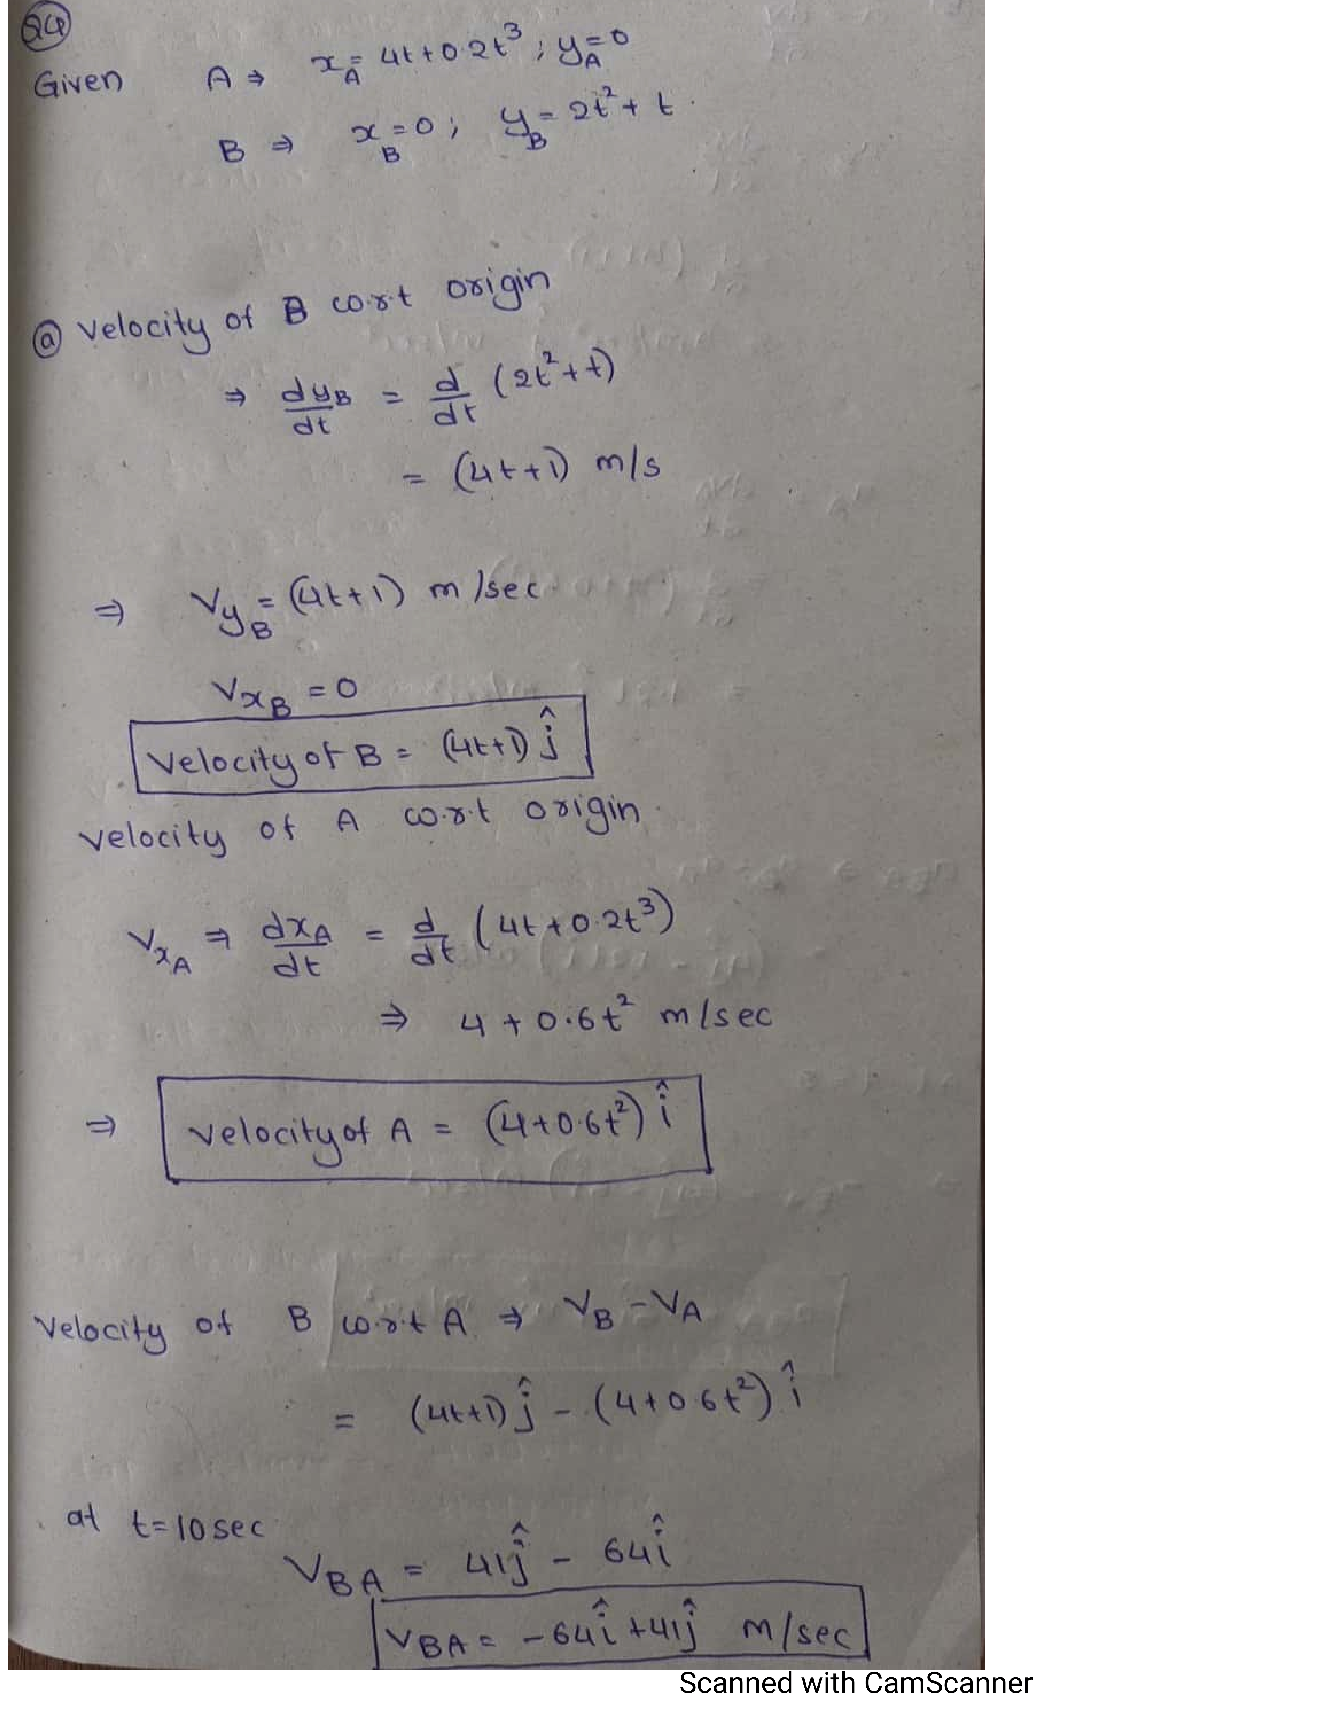 24
Given A ⇒ x_A = 4t + 0.2t³ ; y_A = 0
B ⇒ x_B = 0 ; y_B = 2t² + t .
ⓐ velocity of B w.r.t origin
⇒ dy_B/dt = d/dt (2t² + t)
= (4t+1) m/s
⇒ V_yB = (4t+1) m/sec
V_xB = 0
Velocity of B = (4t+1) ĵ
velocity of A w.r.t origin.
V_xA ⇒ dx_A/dt = d/dt (4t + 0.2t³)
⇒ 4 + 0.6t² m/sec
⇒ velocity of A = (4+0.6t²) î
Velocity of B w.r.t A ⇒ V_B - V_A
= (4t+1) ĵ - (4+0.6t²) î
at t=10 sec
V_BA = 41ĵ - 64î
V_BA = -64î + 41ĵ m/sec
Scanned with CamScanner